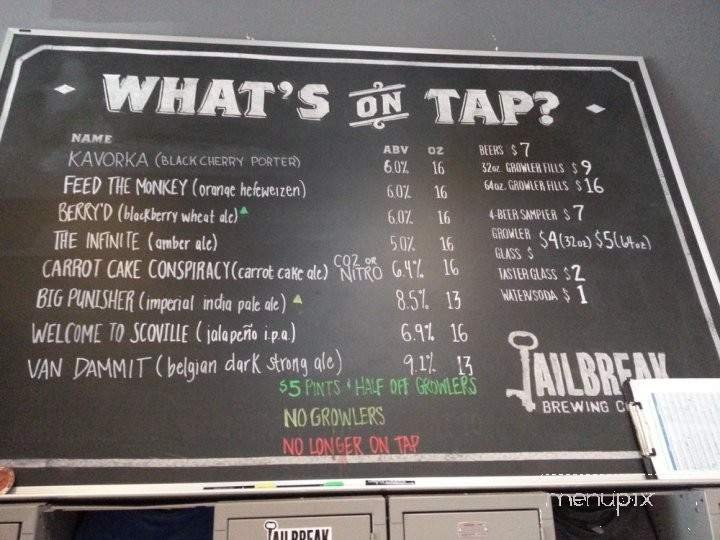 WHAT'S ON TAP?
NAME ABV OZ
KAVORKA (BLACK CHERRY PORTER) 6.0% 16
FEED THE MONKEY (orange hefeweizen) 6.0% 16
BERRY'D (blackberry wheat ale) 6.0% 16
THE INFINITE (amber ale) 5.0% 16
CARROT CAKE CONSPIRACY (carrot cake ale) CO2 OR NITRO 6.4% 16
BIG PUNISHER (imperial india pale ale) 8.5% 13
WELCOME TO SCOVILLE (jalapeño i.p.a.) 6.9% 16
VAN DAMMIT (belgian dark strong ale) 9.1% 13
$5 PINTS & HALF OFF GROWLERS
NO GROWLERS
NO LONGER ON TAP
BEERS $7
32oz. GROWLER FILLS $9
64oz. GROWLER FILLS $16
4-BEER SAMPLER $7
GROWLER $4(32oz) $5(64oz)
GLASS $
TASTER GLASS $2
WATER/SODA $1
JAILBREAK
BREWING C
JAILBREAK
menupix